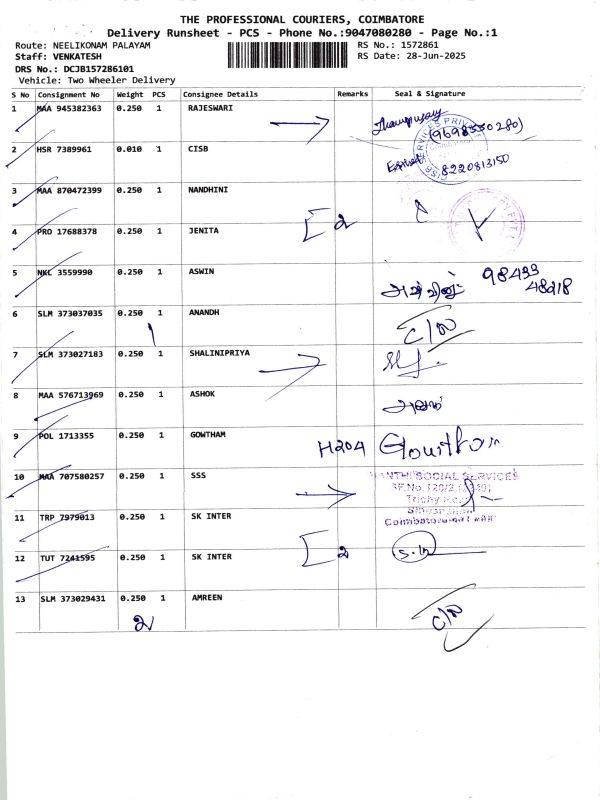 THE PROFESSIONAL COURIERS, COIMBATORE
Delivery Runsheet - PCS - Phone No.:9047080280 - Page No.:1
Route: NEELIKONAM PALAYAM RS No.: 1572861
Staff: VENKATESH RS Date: 28-Jun-2025
DRS No.: DCJB157286101
Vehicle: Two Wheeler Delivery
S No Consignment No Weight PCS Consignee Details Remarks Seal & Signature
1 MAA 945382363 0.250 1 RAJESWARI
2 HSR 7389961 0.010 1 CISB 8220813150
3 MAA 870472399 0.250 1 NANDHINI
4 PRO 17688378 0.250 1 JENITA 2
5 NKL 3559990 0.250 1 ASWIN 98433
48218
6 SLM 373037035 0.250 1 ANANDH C/N
7 SLM 373027183 0.250 1 SHALINIPRIYA
8 MAA 576713969 0.250 1 ASHOK
9 POL 1713355 0.250 1 GOWTHAM H204
10 MAA 707580257 0.250 1 SSS SOCIAL SERVICES
Trichy
Coimbatore
11 TRP 7979013 0.250 1 SK INTER
12 TUT 7241595 0.250 1 SK INTER 2
13 SLM 373029431 0.250 1 AMREEN C/N
2